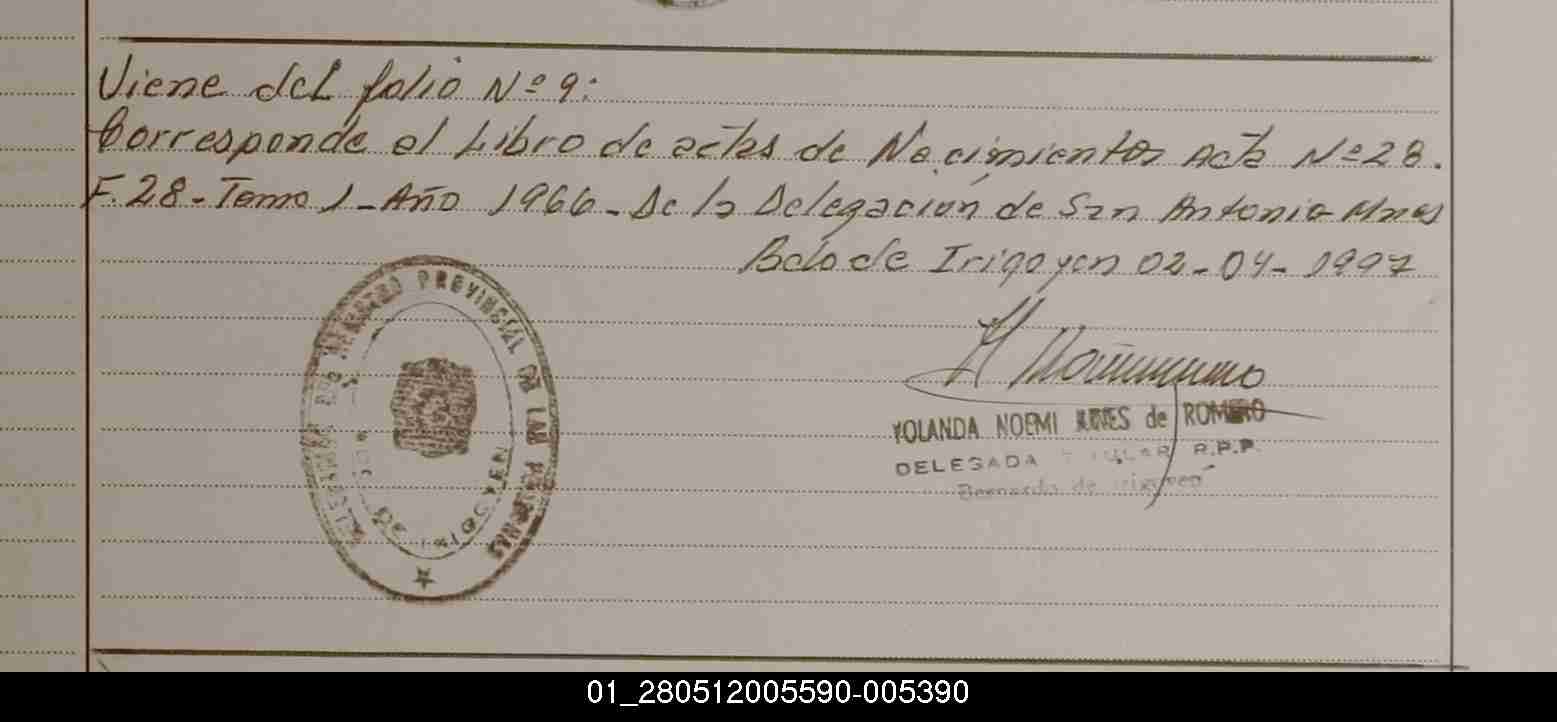 Viene del folio Nº 9:
Corresponde al Libro de actas de Nacimientos Acta Nº 28.
F. 28 - Tomo 1 - Año 1966 - De la Delegación de San Antonio Mnes
Bdo de Irigoyen 02-04-1997
REGISTRO PROVINCIAL DE LAS PERSONAS
DE IRIGOYEN
YOLANDA NOEMI de ROMERO
DELEGADA TITULAR R.P.P.
Bernardo de Irigoyen
01_280512005590-005390